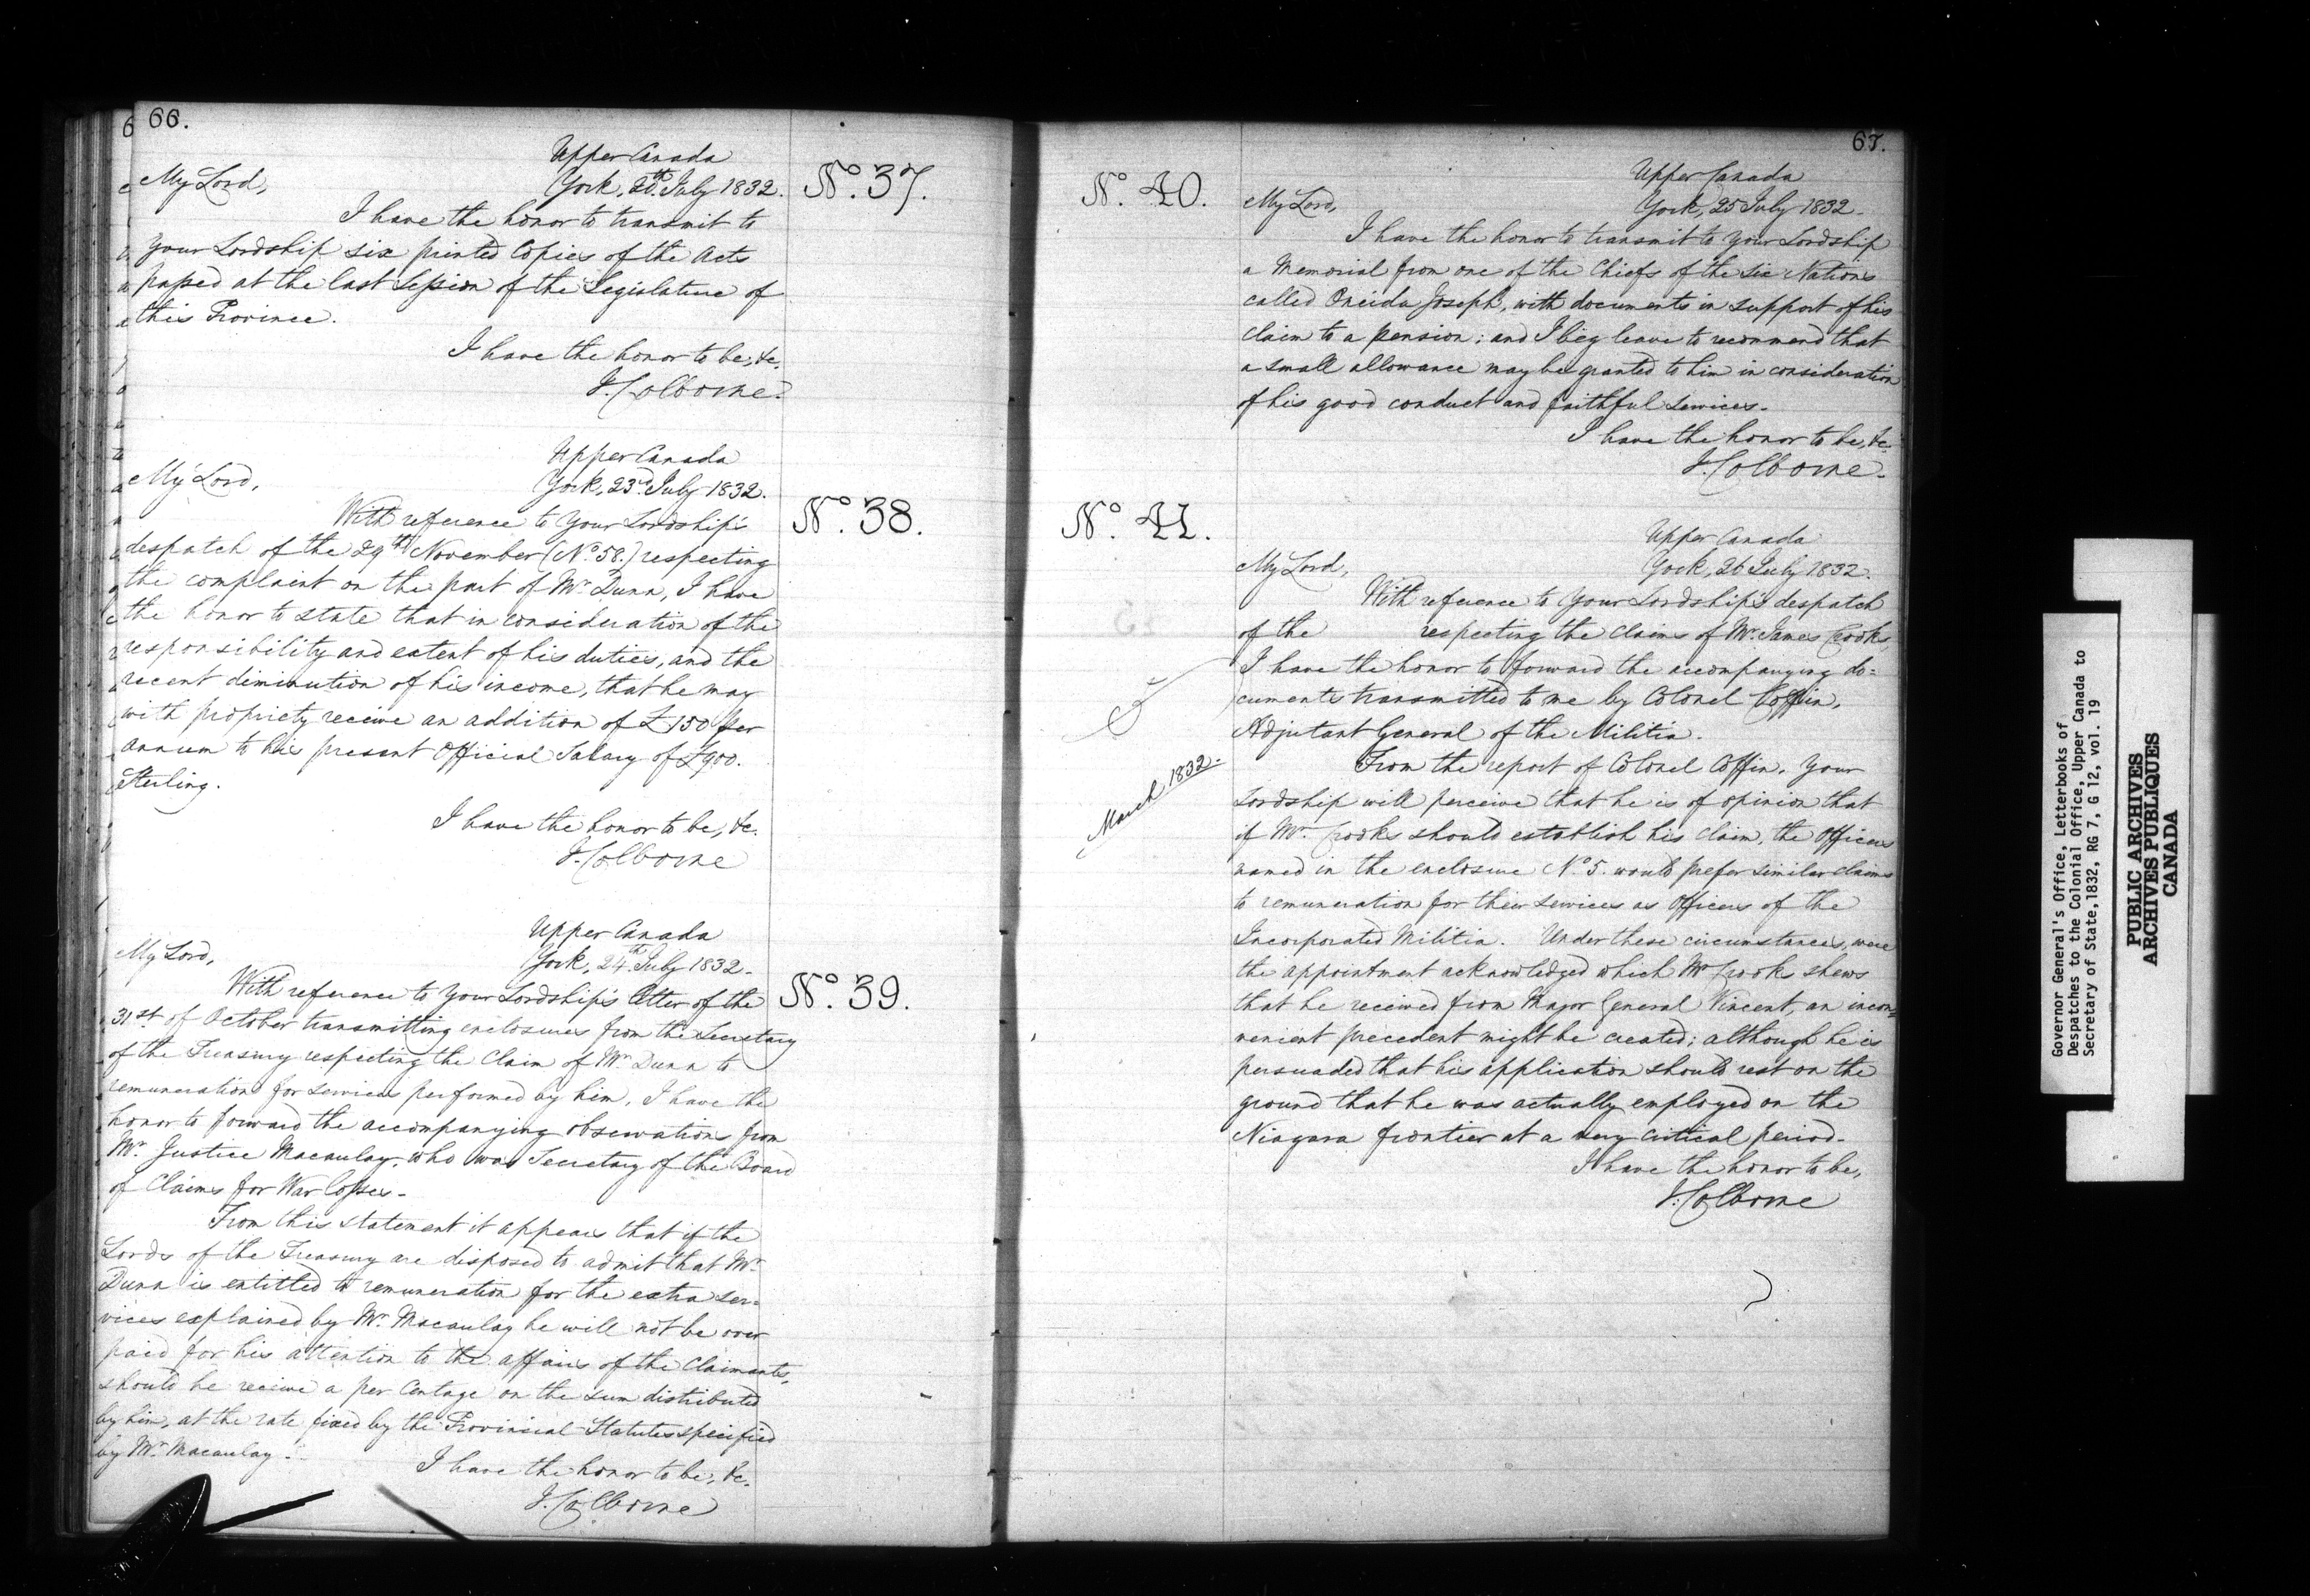 66.
Upper Canada
My Lord,
York, 20th July 1832.
No. 37.
I have the honor to transmit to
your Lordship six printed Copies of the Acts
passed at the last Session of the Legislature of
this Province.
I have the honor to be, &c.
J. Colborne.
Upper Canada
My Lord,
York, 23rd July 1832.
No. 38.
With reference to Your Lordship's
despatch of the 29th November (No. 58.) respecting
the complaint on the part of Mr. Dunn, I have
the honor to state that in consideration of the
responsibility and extent of his duties, and the
recent diminution of his income, that he may
with propriety receive an addition of £150 per
annum to his present Official Salary of £900.
Sterling.
I have the honor to be, &c.
J. Colborne
Upper Canada
My Lord,
York, 24th July 1832.
No. 39.
With reference to Your Lordship's letter of the
31st. of October transmitting enclosures from the Secretary
of the Treasury respecting the Claim of Mr. Dunn to
remuneration for services performed by him, I have the
honor to forward the accompanying observations from
Mr. Justice Macaulay, who was Secretary of the Board
of Claims for War losses.
From this statement it appears that if the
Lords of the Treasury are disposed to admit that Mr.
Dunn is entitled to remuneration for the extra ser=
vices explained by Mr. Macaulay he will not be over
paid for his attention to the affairs of the Claimants,
should he receive a per Centage on the sum distributed
by him, at the rate fixed by the Provincial Statutes specified
by Mr. Macaulay.
I have the honor to be, &c.
J. Colborne
67.
Upper Canada
No. 40.
My Lord,
York, 25 July 1832.
I have the honor to transmit to Your Lordship
a Memorial from one of the Chiefs of the Six Nations
called Oneida Joseph, with documents in support of his
claim to a pension; and I beg leave to recommend that
a small allowance may be granted to him in consideration
of his good conduct and faithful services.
I have the honor to be, &c.
J. Colborne.
No. 41.
Upper Canada
My Lord,
York, 26 July 1832.
With reference to Your Lordship's despatch
of the respecting the claims of Mr. James Crooks,
I have the honor to forward the accompanying do=
cuments transmitted to me by Colonel Coffin,
Adjutant General of the Militia.
March 1832.
From the report of Colonel Coffin, Your
Lordship will perceive that he is of opinion that
if Mr. Crooks should establish his claim, the Officers
named in the enclosure No. 5. would prefer similar claims
to remuneration for their services as Officers of the
Incorporated Militia. Under these circumstances, were
the appointment acknowledged which Mr Crooks shews
that he received from Major General Vincent, an incon=
venient precedent might be created; although he is
persuaded that his application should rest on the
ground that he was actually employed on the
Niagara frontier at a very critical period.
I have the honor to be,
J. Colborne
Governor General's Office, Letterbooks of
Despatches to the Colonial Office, Upper Canada to
Secretary of State, 1832, RG 7, G 12, vol. 19
PUBLIC ARCHIVES
ARCHIVES PUBLIQUES
CANADA